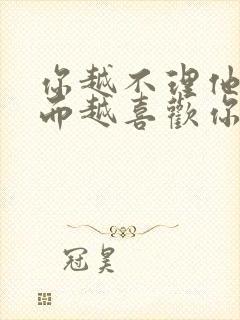 你越不理他
而越喜歡你
冠昊